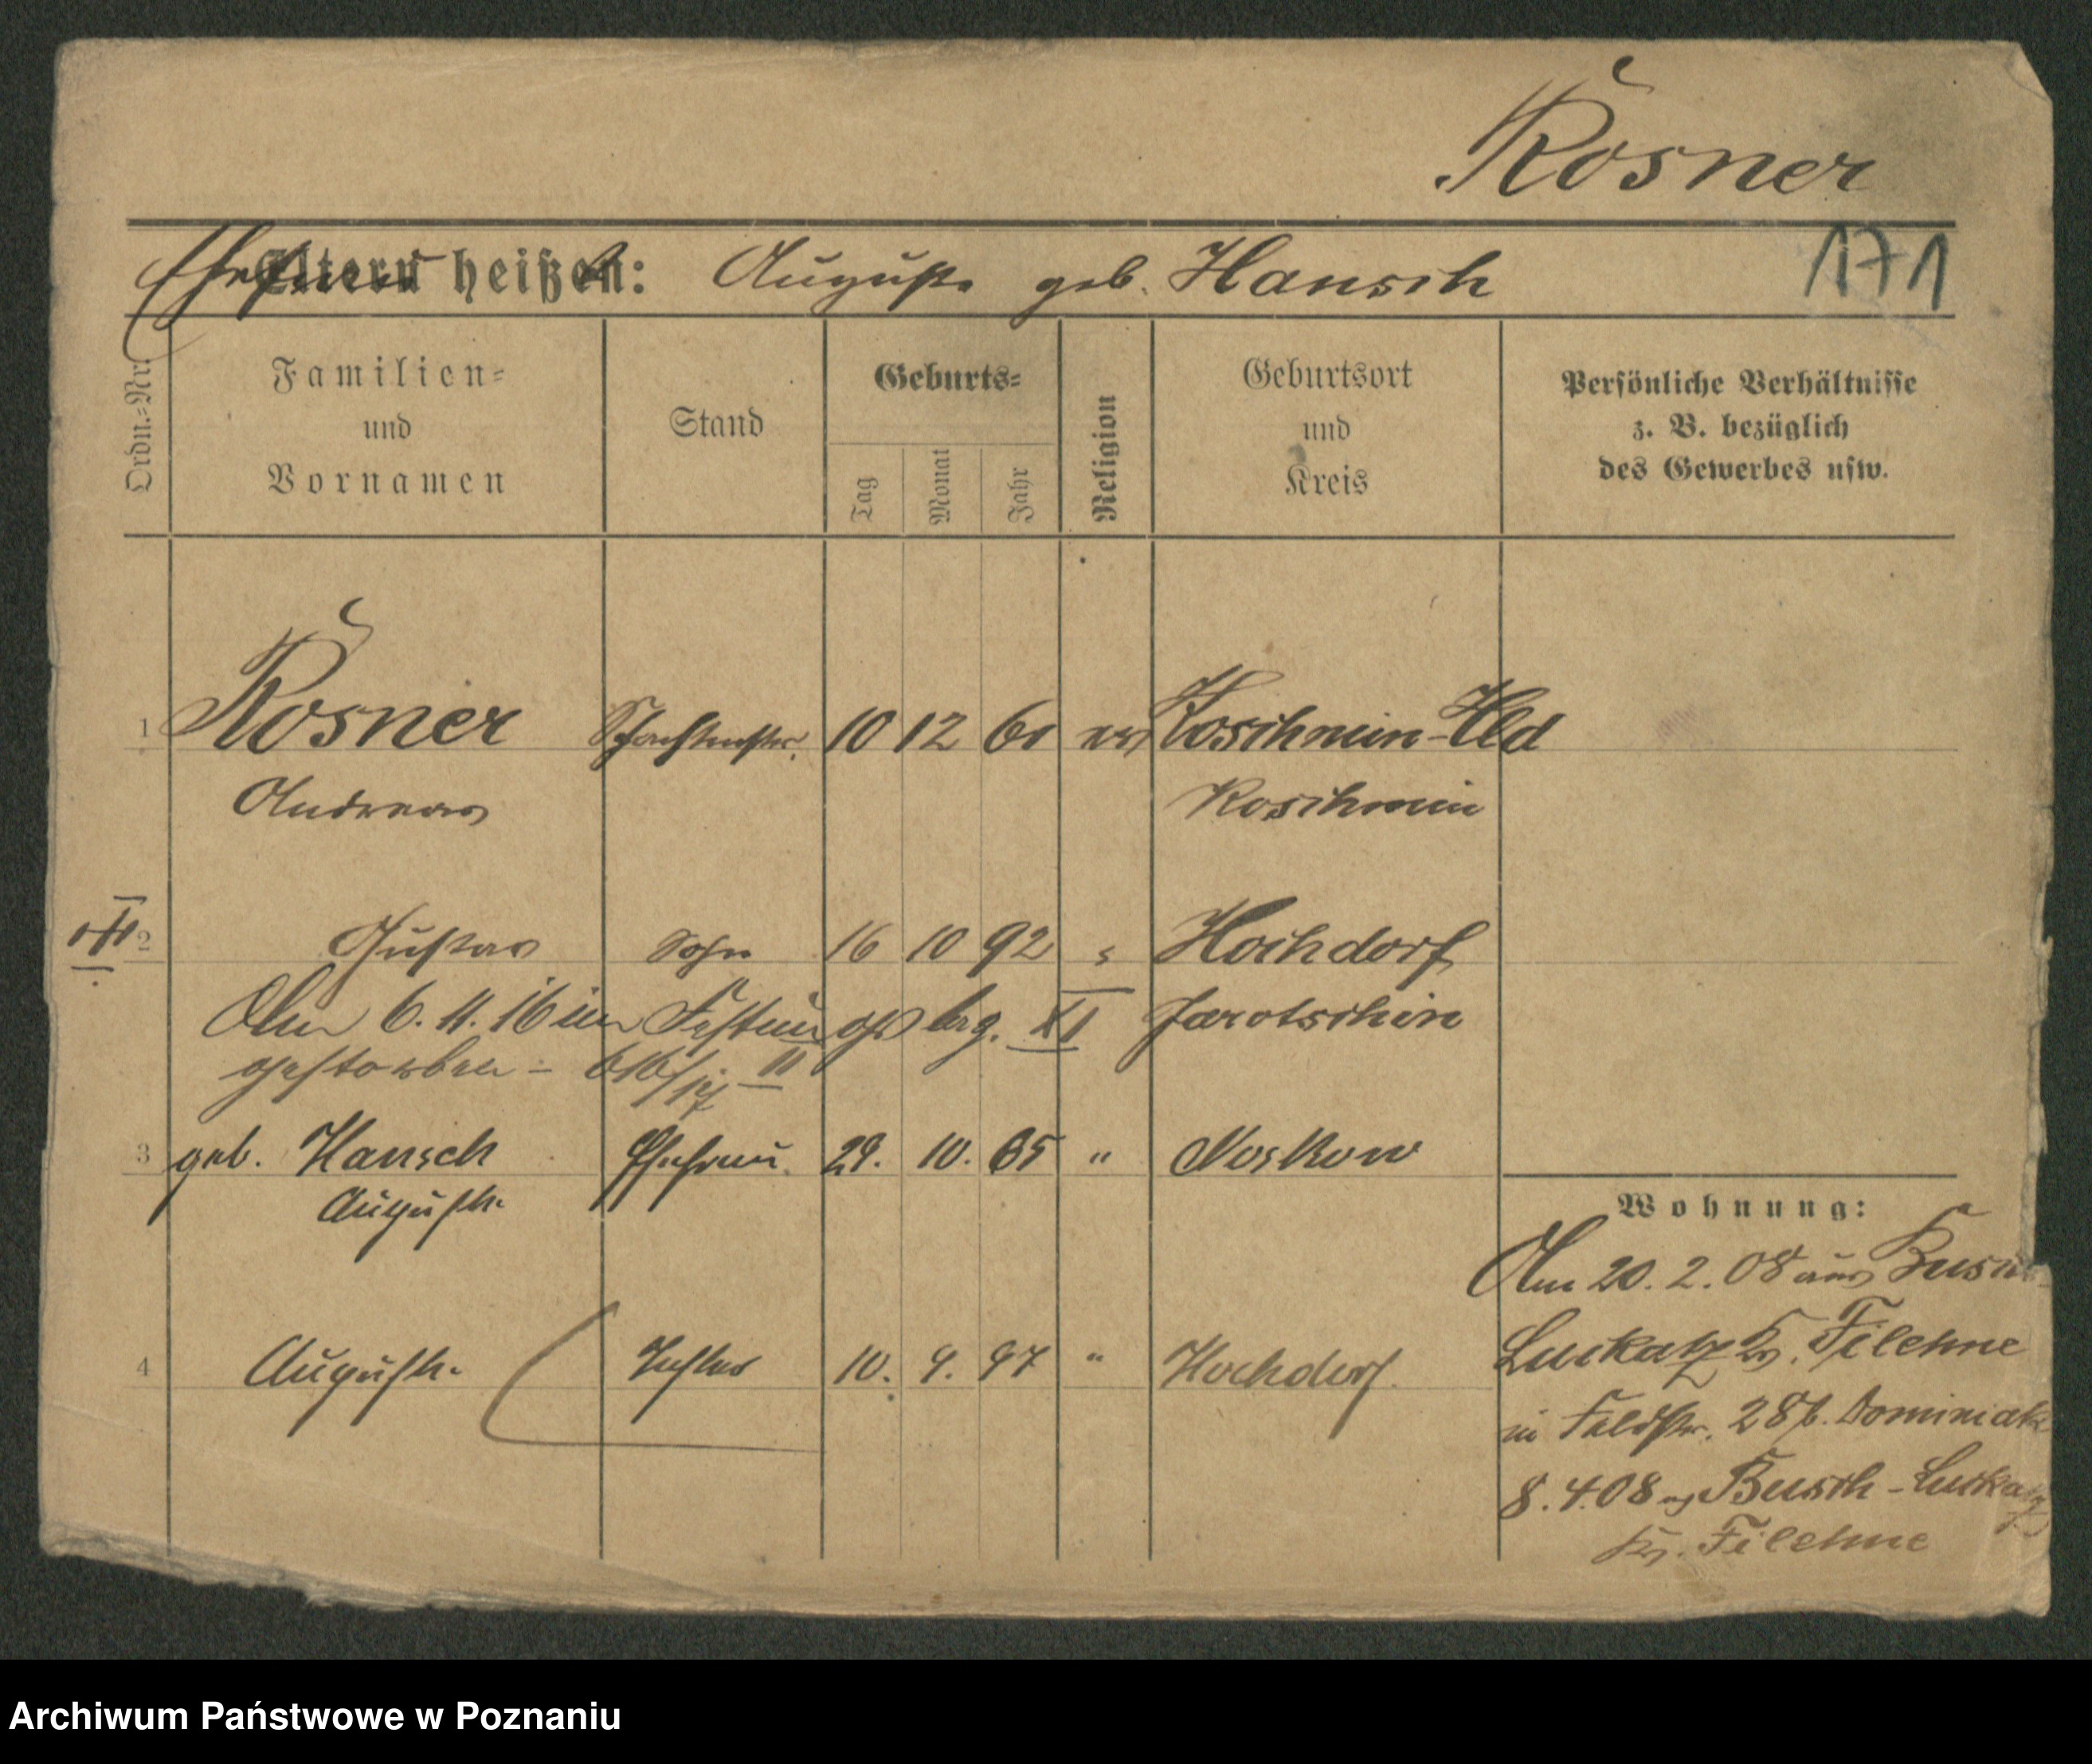 Rosner
171
Ehefrau Eltern heißen: Auguste geb. Hansch
Ordn.=Nr.
Familien=
und
Vornamen
Stand
Geburts=
Tag
Monat
Jahr
Religion
Geburtsort
und
Kreis
Persönliche Verhältnisse
z. B. bezüglich
des Gewerbes usw.
1 Rosner Schachtmstr. 10 12 61 ev Koschmin-Hld
Andreas Koschmin
2 Gustav Sohn 16 10 92 Hochdorf
Am 6. 11. 16 im Festungs laz. XI Jarotschin
gestorben - 616/17 II
3 geb. Hansch Ehefrau 29. 10. 65 " Noskow
Auguste
Wohnung:
Am 20. 2. 08 aus Busch
4 Auguste Tochter 10. 9. 97 " Hochdorf
Luckatz Kr. Filehne
in Feldstr. 28 b. Dominiak
8. 4. 08 n. Busch-Luckatz
Kr. Filehne
Archiwum Państwowe w Poznaniu